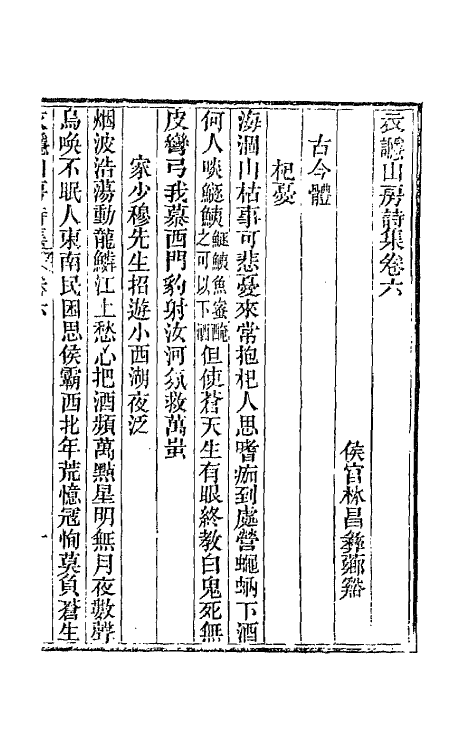 衣讔山房詩集卷六
侯官林昌彝薌谿
古今體
杞憂
海涸山枯事可悲憂來常抱杞人思嗜痂到處營蠅蚋下酒
何人啖鱁鮧鱁鮧魚蜜醃之可以下酒但使蒼天生有眼終教白鬼死無
皮彎弓我慕西門豹射汝河氛救萬蚩
家少穆先生招遊小西湖夜泛
烟波浩蕩動龍鱗江上愁心把酒頻萬點星明無月夜數聲
烏喚不眠人東南民困思侯霸西北年荒憶寇恂莫負蒼生
衣讔山房詩集 卷六 一